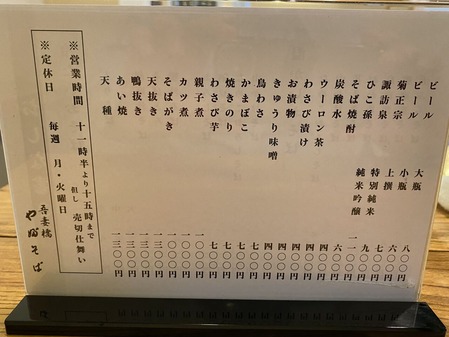 ビール 大瓶 八〇〇円
ビール 小瓶 六〇〇円
菊正宗 上撰 七〇〇円
諏訪泉 特別純米 九〇〇円
ひこ孫 純米吟醸 一一〇〇円
そば焼酎 六〇〇円
炭酸水 四〇〇円
ウーロン茶 四〇〇円
わさび漬け 四〇〇円
お漬物 四〇〇円
きゅうり味噌 四〇〇円
鳥わさ 七〇〇円
かまぼこ 七〇〇円
焼きのり 七〇〇円
わさび芋 七〇〇円
親子煮 一〇〇〇円
カツ煮 一〇〇〇円
そばがき 一〇〇〇円
天抜き 一三〇〇円
鴨抜き 一三〇〇円
あい焼 一三〇〇円
天種 一三〇〇円
※営業時間 十一時半より十五時まで
但し 売切仕舞い
※定休日 毎週 月・火曜日
吾妻橋
やぶそば